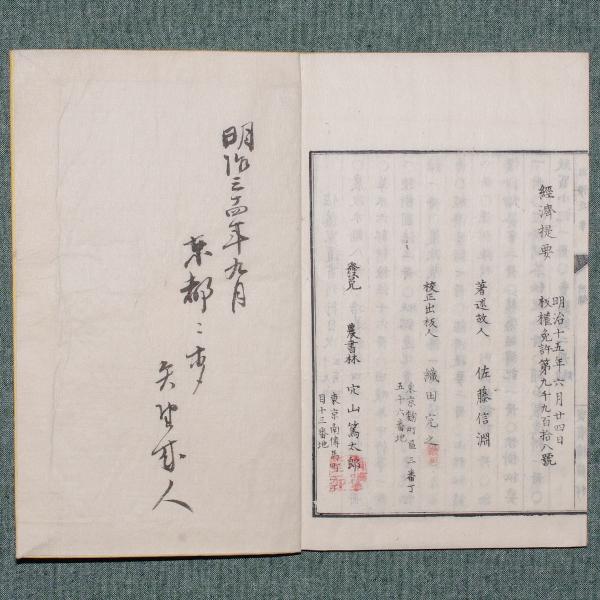 經濟提要
明治十五年六月廿四日
板權免許第九千九百拾八號
著述故人 佐藤信淵
校正出板人 織田完之
東京麴町區三番丁
五十六番地
發兌 農書林 穴山篤太郎
東京南傳馬町二丁
目十三番地
明治三四年九月
東都ニ
人